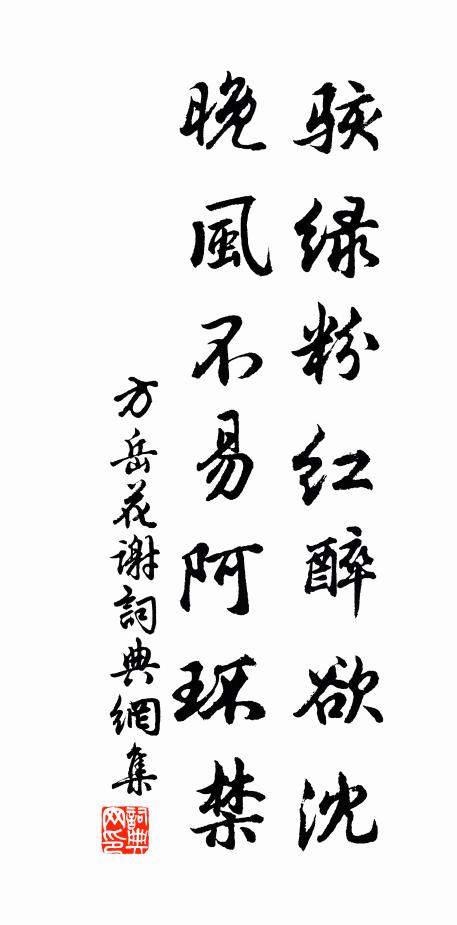 駭綠粉紅醉欲沈
晚風不易阿環禁
方岳花謝詞典網集
詞典网印